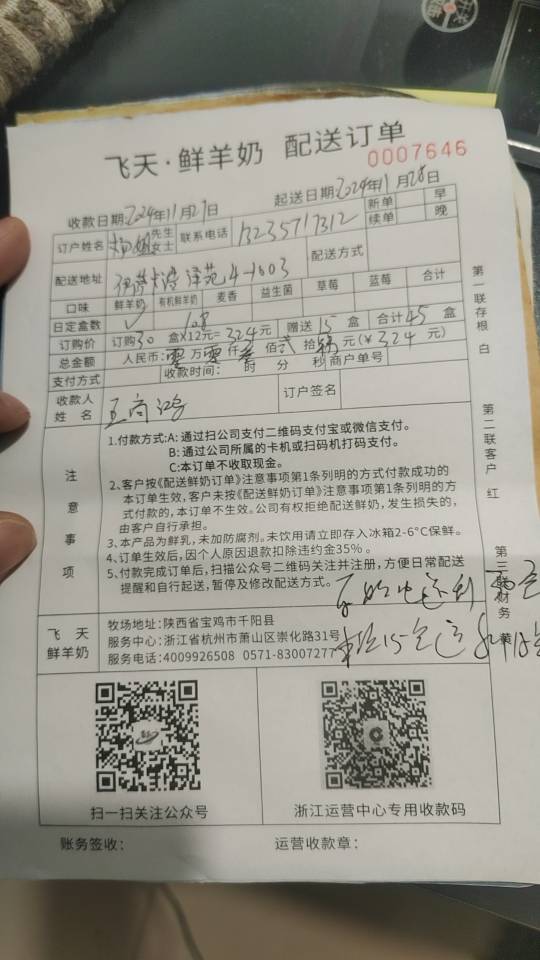 飞天·鲜羊奶 配送订单
0007646
收款日期:2024年11月27日 起送日期:2024年11月28日
订户姓名 杨姐 先生 女士 联系电话 13235717312 新单 早
续单 晚
配送地址 泽苑4-1003 配送方式
口味 鲜羊奶 有机鲜羊奶 麦香 益生菌 草莓 蓝莓 合计
日定盒数 10.8
订购价 订购30盒X12元=324元 赠送15盒 合计45盒
总金额 人民币:零万零仟叁佰贰拾肆元(¥324元)
支付方式 收款时间: 时 分 秒 商户单号
收款人姓名 王高鸿 订户签名
注意事项
1.付款方式:A: 通过扫公司支付二维码支付宝或微信支付。
B: 通过公司所属的卡机或扫码机打码支付。
C:本订单不收取现金。
2、客户按《配送鲜奶订单》注意事项第1条列明的方式付款成功的
本订单生效,客户未按《配送鲜奶订单》注意事项第1条列明的方
式付款的,本订单不生效。公司有权拒绝配送鲜奶,发生损失的,
由客户自行承担。
3、本产品为鲜乳,未加防腐剂。未饮用请立即存入冰箱2-6°C保鲜。
4、订单生效后,因个人原因退款扣除违约金35%。
5、付款完成订单后,扫描公众号二维码关注并注册,方便日常配送
提醒和自行起送,暂停及修改配送方式。
飞天鲜羊奶
牧场地址:陕西省宝鸡市千阳县
服务中心:浙江省杭州市萧山区崇化路31号
服务电话:4009926508 0571-83007277
扫一扫关注公众号 浙江运营中心专用收款码
账务签收: 运营收款章:
第一联存根 白
第二联客户 红
第三联财务 黄